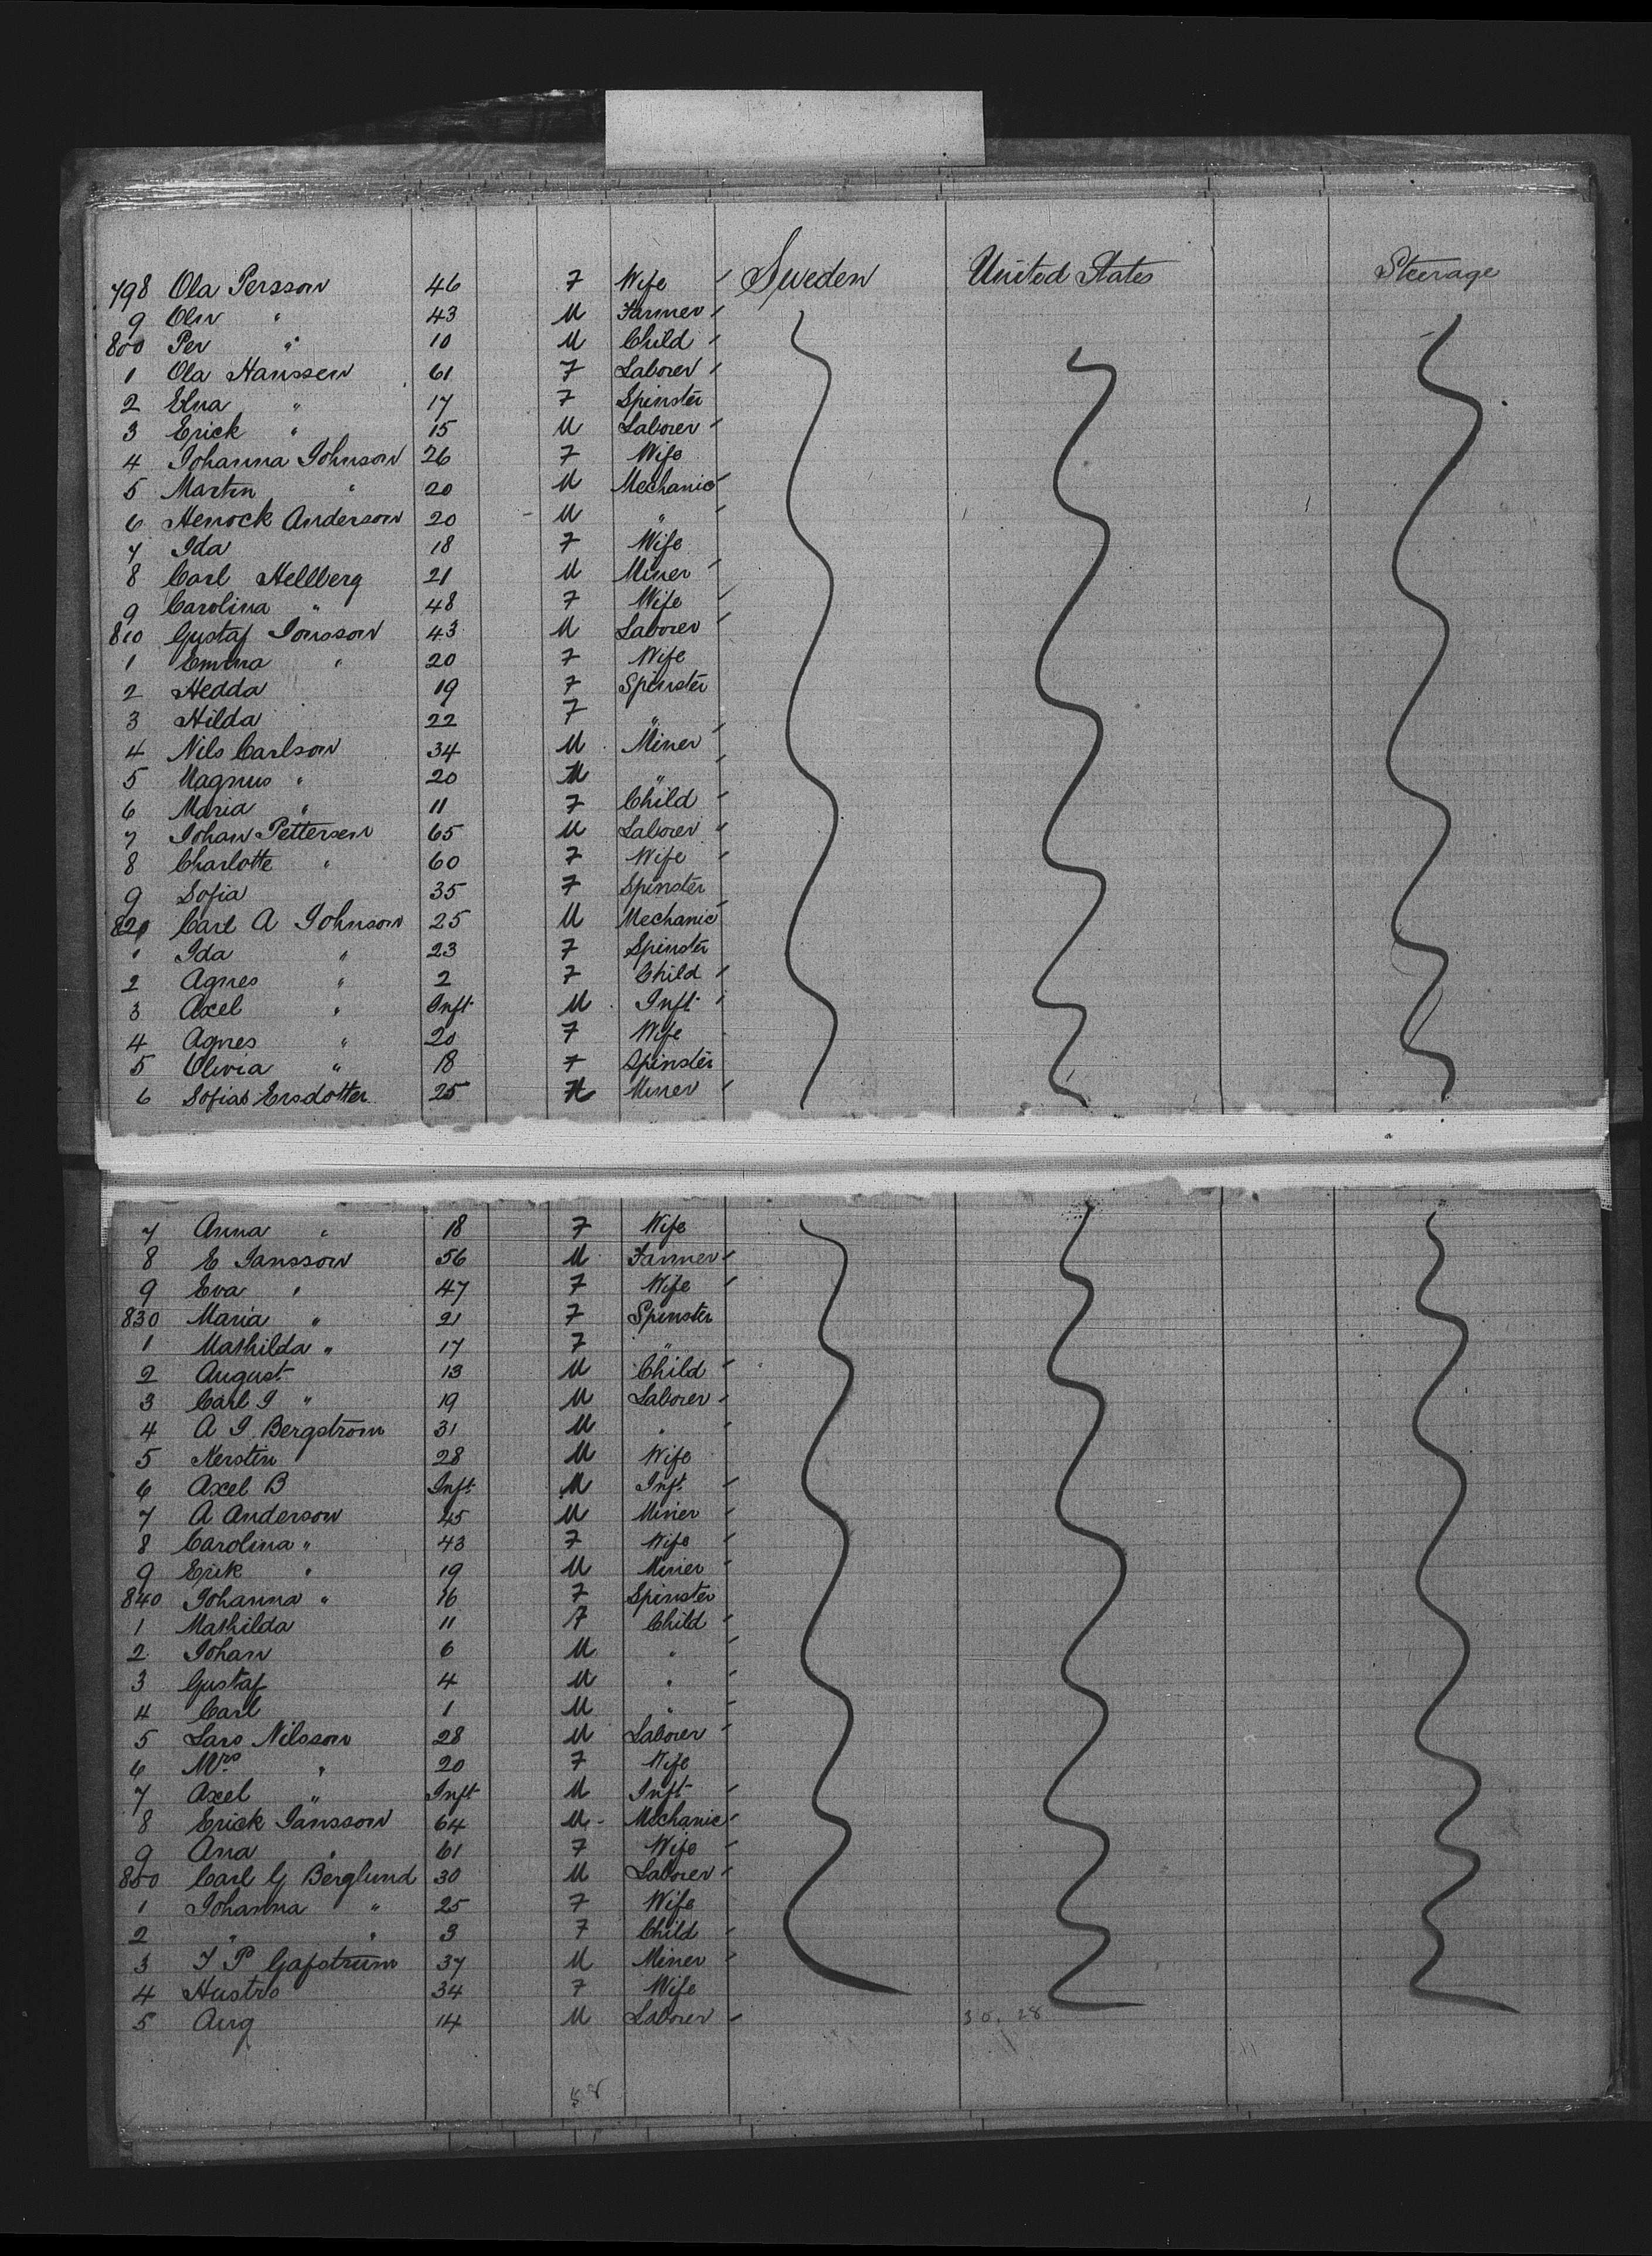 798 Ola Persson 46 F Wife Sweden United States Steerage
9 Oliv " 43 M Farmer
800 Per " 10 M Child
1 Ola Hanssen 61 F Laborer
2 Elna " 17 F Spinster
3 Erick " 15 M Laborer
4 Johanna Johnson 26 F Wife
5 Martin " 20 M Mechanic
6 Henock Anderson 20 M "
7 Ida 18 F Wife
8 Carl Hellberg 21 M Miner
9 Carolina " 48 F Wife
810 Gustaf Jonsson 43 M Laborer
1 Emma " 20 F Wife
2 Hedda 19 F Spinster
3 Hilda 22 F "
4 Nils Carlson 34 M Miner
5 Magnus " 20 M "
6 Maria " 11 F Child
7 Johan Pettersen 65 M Laborer
8 Charlotte " 60 F Wife
9 Sofia 35 F Spinster
820 Carl A Johnson 25 M Mechanic
1 Ida " 23 F Spinster
2 Agnes " 2 F Child
3 Axel " Inft M Inft
4 Agnes " 20 F Wife
5 Olivia " 18 F Spinster
6 Sofias Ersdotter 25 Miner
7 Anna " 18 F Wife
8 E Jansson 56 M Farmer
9 Eva " 47 F Wife
830 Maria " 21 F Spinster
1 Mathilda " 17 F "
2 August 13 M Child
3 Carl J " 19 M Laborer
4 A J Bergstrom 31 M "
5 Kersten 28 M Wife
6 Axel B Inft M Inft
7 A Anderson 45 M Miner
8 Carolina " 43 F Wife
9 Erik " 19 M Miner
840 Johanna " 16 F Spinster
1 Mathilda 11 F Child
2 Johan 6 M "
3 Gustaf 4 M "
4 Carl 1 M "
5 Lars Nilsson 28 M Laborer
6 Mrs " 20 F Wife
7 Axel " Inft M Inft
8 Erick Jansson 64 M Mechanic
9 Ana " 61 F Wife
850 Carl G Berglund 30 M Laborer
1 Johanna " 25 F Wife
2 " " 3 F Child
3 J P Gafstrum 37 M Miner
4 Hustro 34 F Wife
5 Aug 14 M Laborer 30. 28